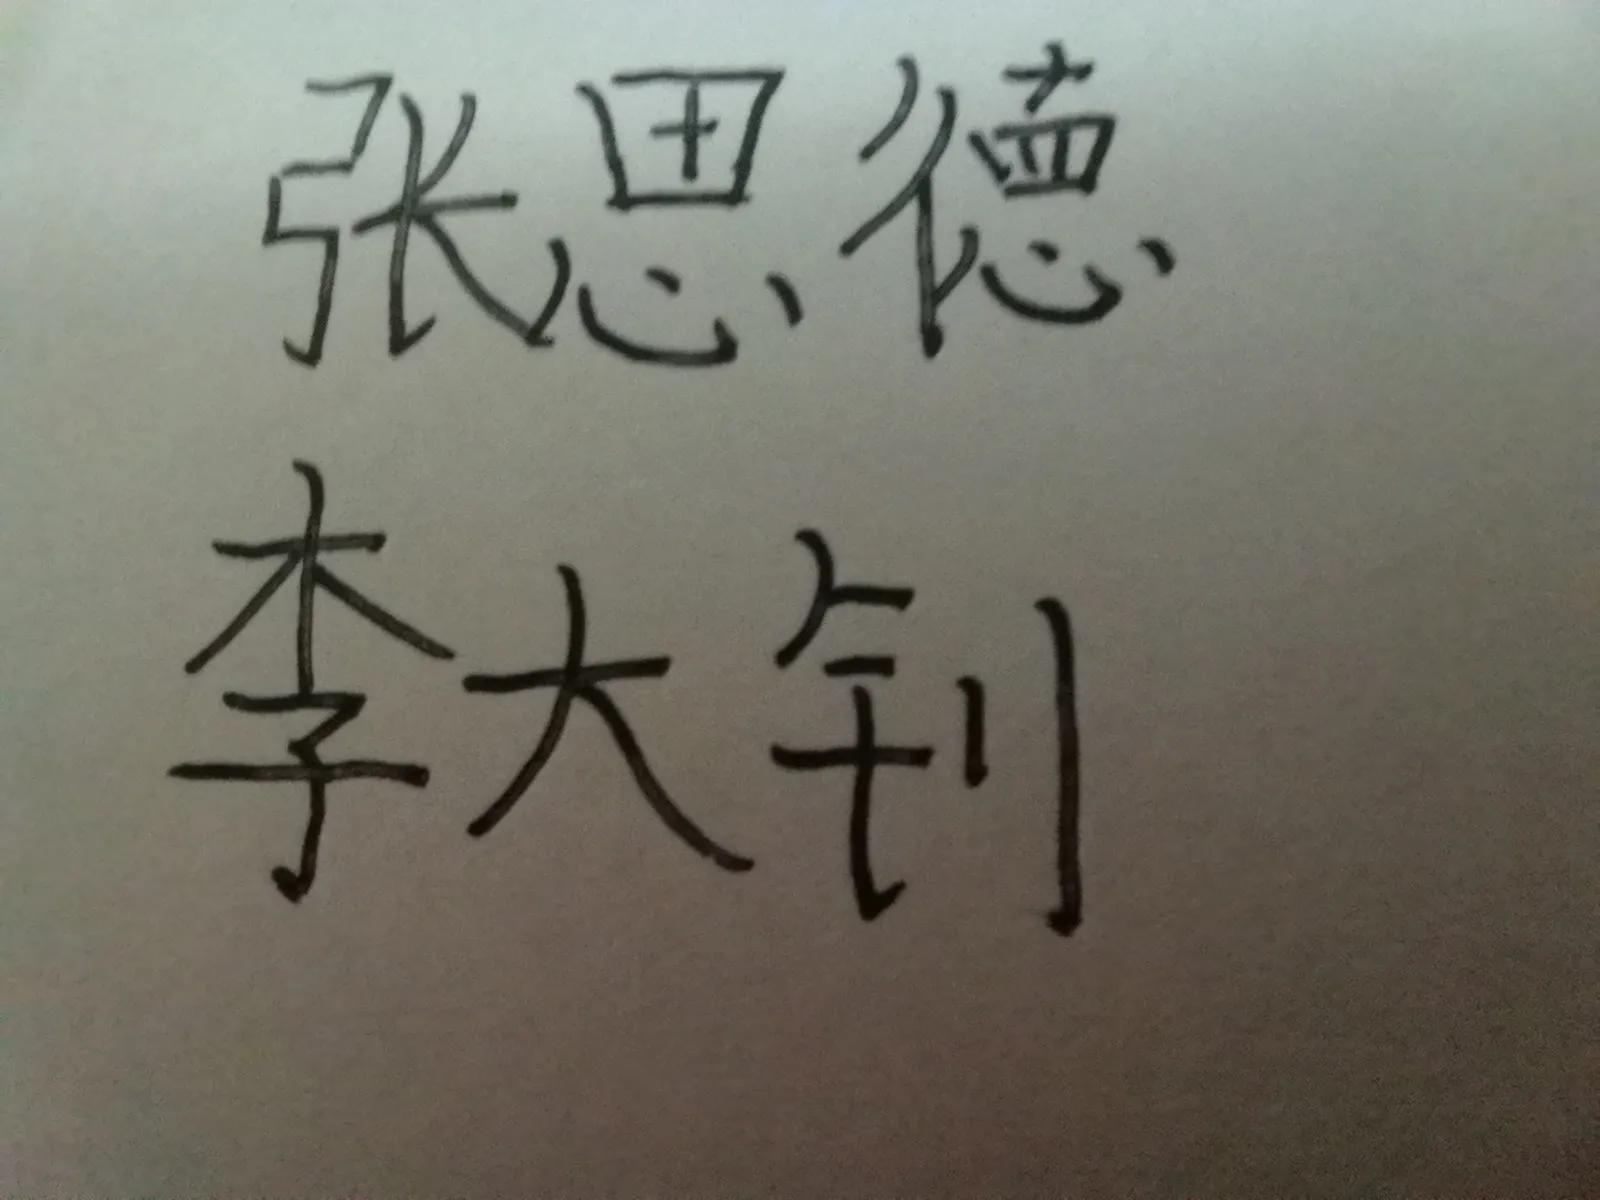 张思德
李大钊